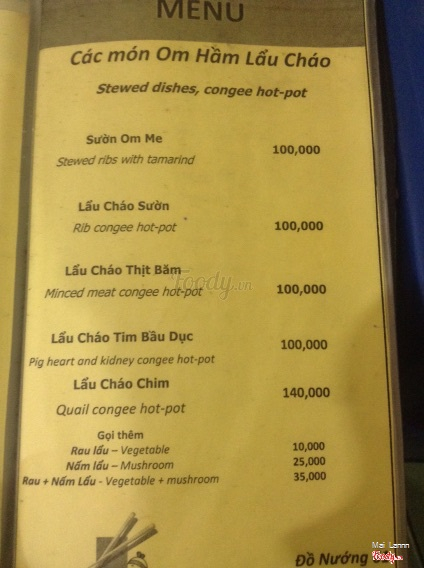 MENU
Các món Om Hầm Lẩu Cháo
Stewed dishes, congee hot-pot
Sườn Om Me 100,000
Stewed ribs with tamarind
Lẩu Cháo Sườn
Rib congee hot-pot 100,000
Lẩu Cháo Thịt Băm
Minced meat congee hot-pot 100,000
Foody.vn
Lẩu Cháo Tim Bầu Dục 100,000
Pig heart and kidney congee hot-pot
Lẩu Cháo Chim 140,000
Quail congee hot-pot
Gọi thêm
Rau lẩu – Vegetable 10,000
Nấm lẩu – Mushroom 25,000
Rau + Nấm Lẩu - Vegetable + mushroom 35,000
Mai Lannn
Đồ Nướng
Foody.vn